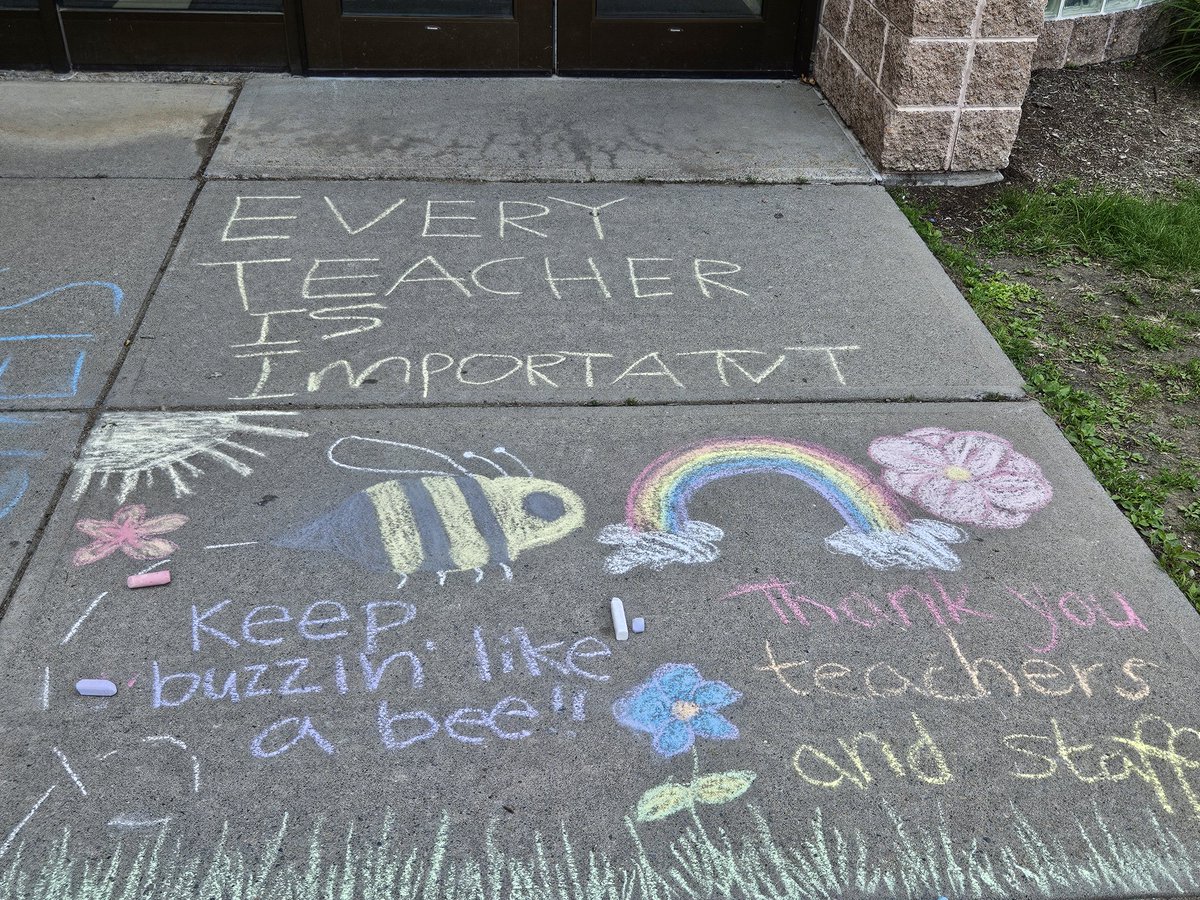 EVERY
TEACHER
IS
ImpORTANT
Keep
buzzin' like
a bee!!
Thank you
teachers
and staff